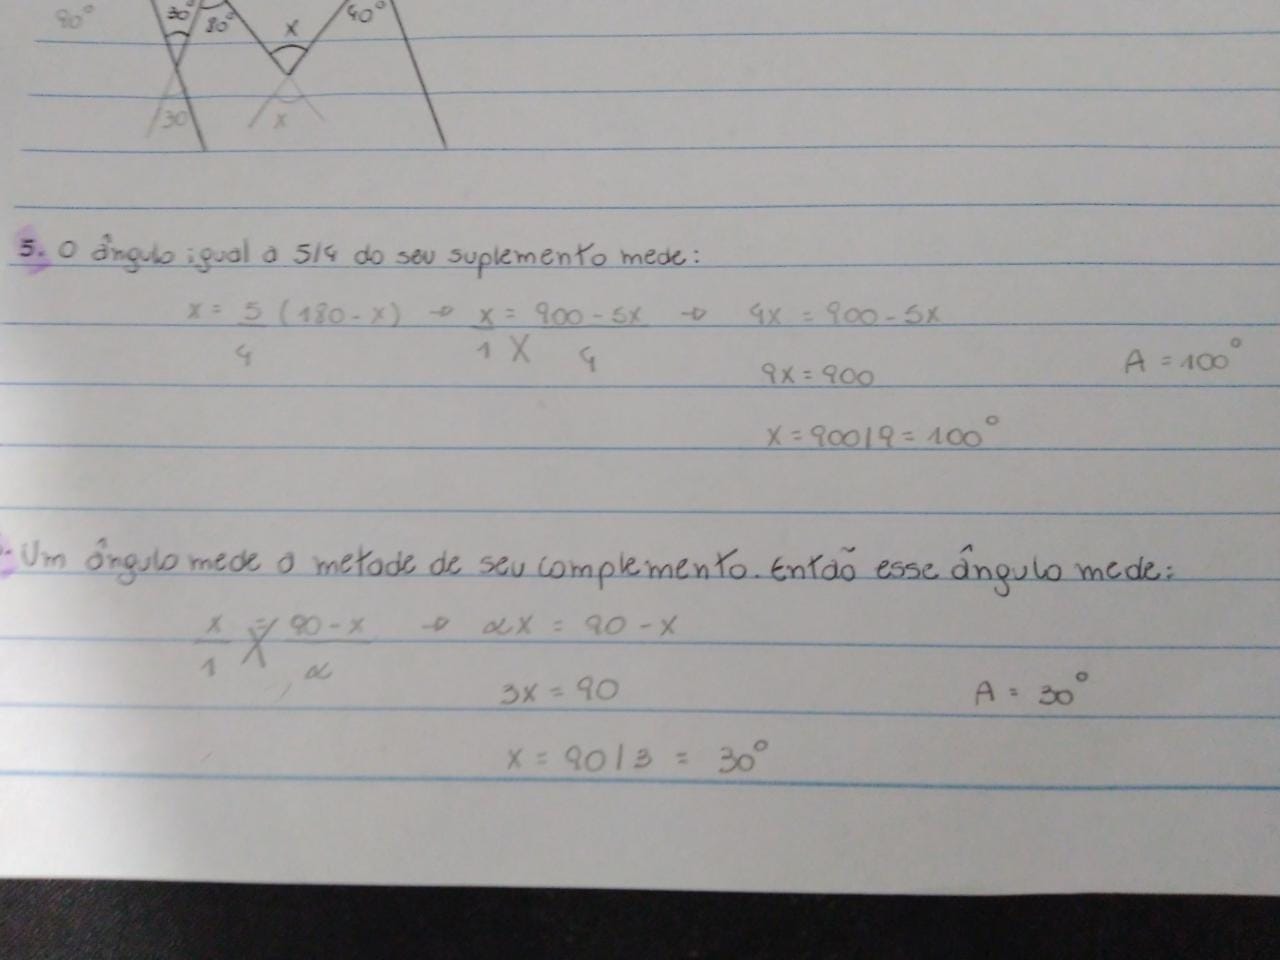 90°
30° 80° x 40°
30 x
5. O ângulo igual a 5/4 do seu suplemento mede:
x = 5/4 (180 - x) → x/1 = 900 - 5x/4 → 4x = 900 - 5x
9x = 900
A = 100°
x = 900/9 = 100°
Um ângulo mede a metade de seu complemento. Então esse ângulo mede:
x/1 = 90 - x/2 → 2x = 90 - x
3x = 90
A = 30°
x = 90/3 = 30°